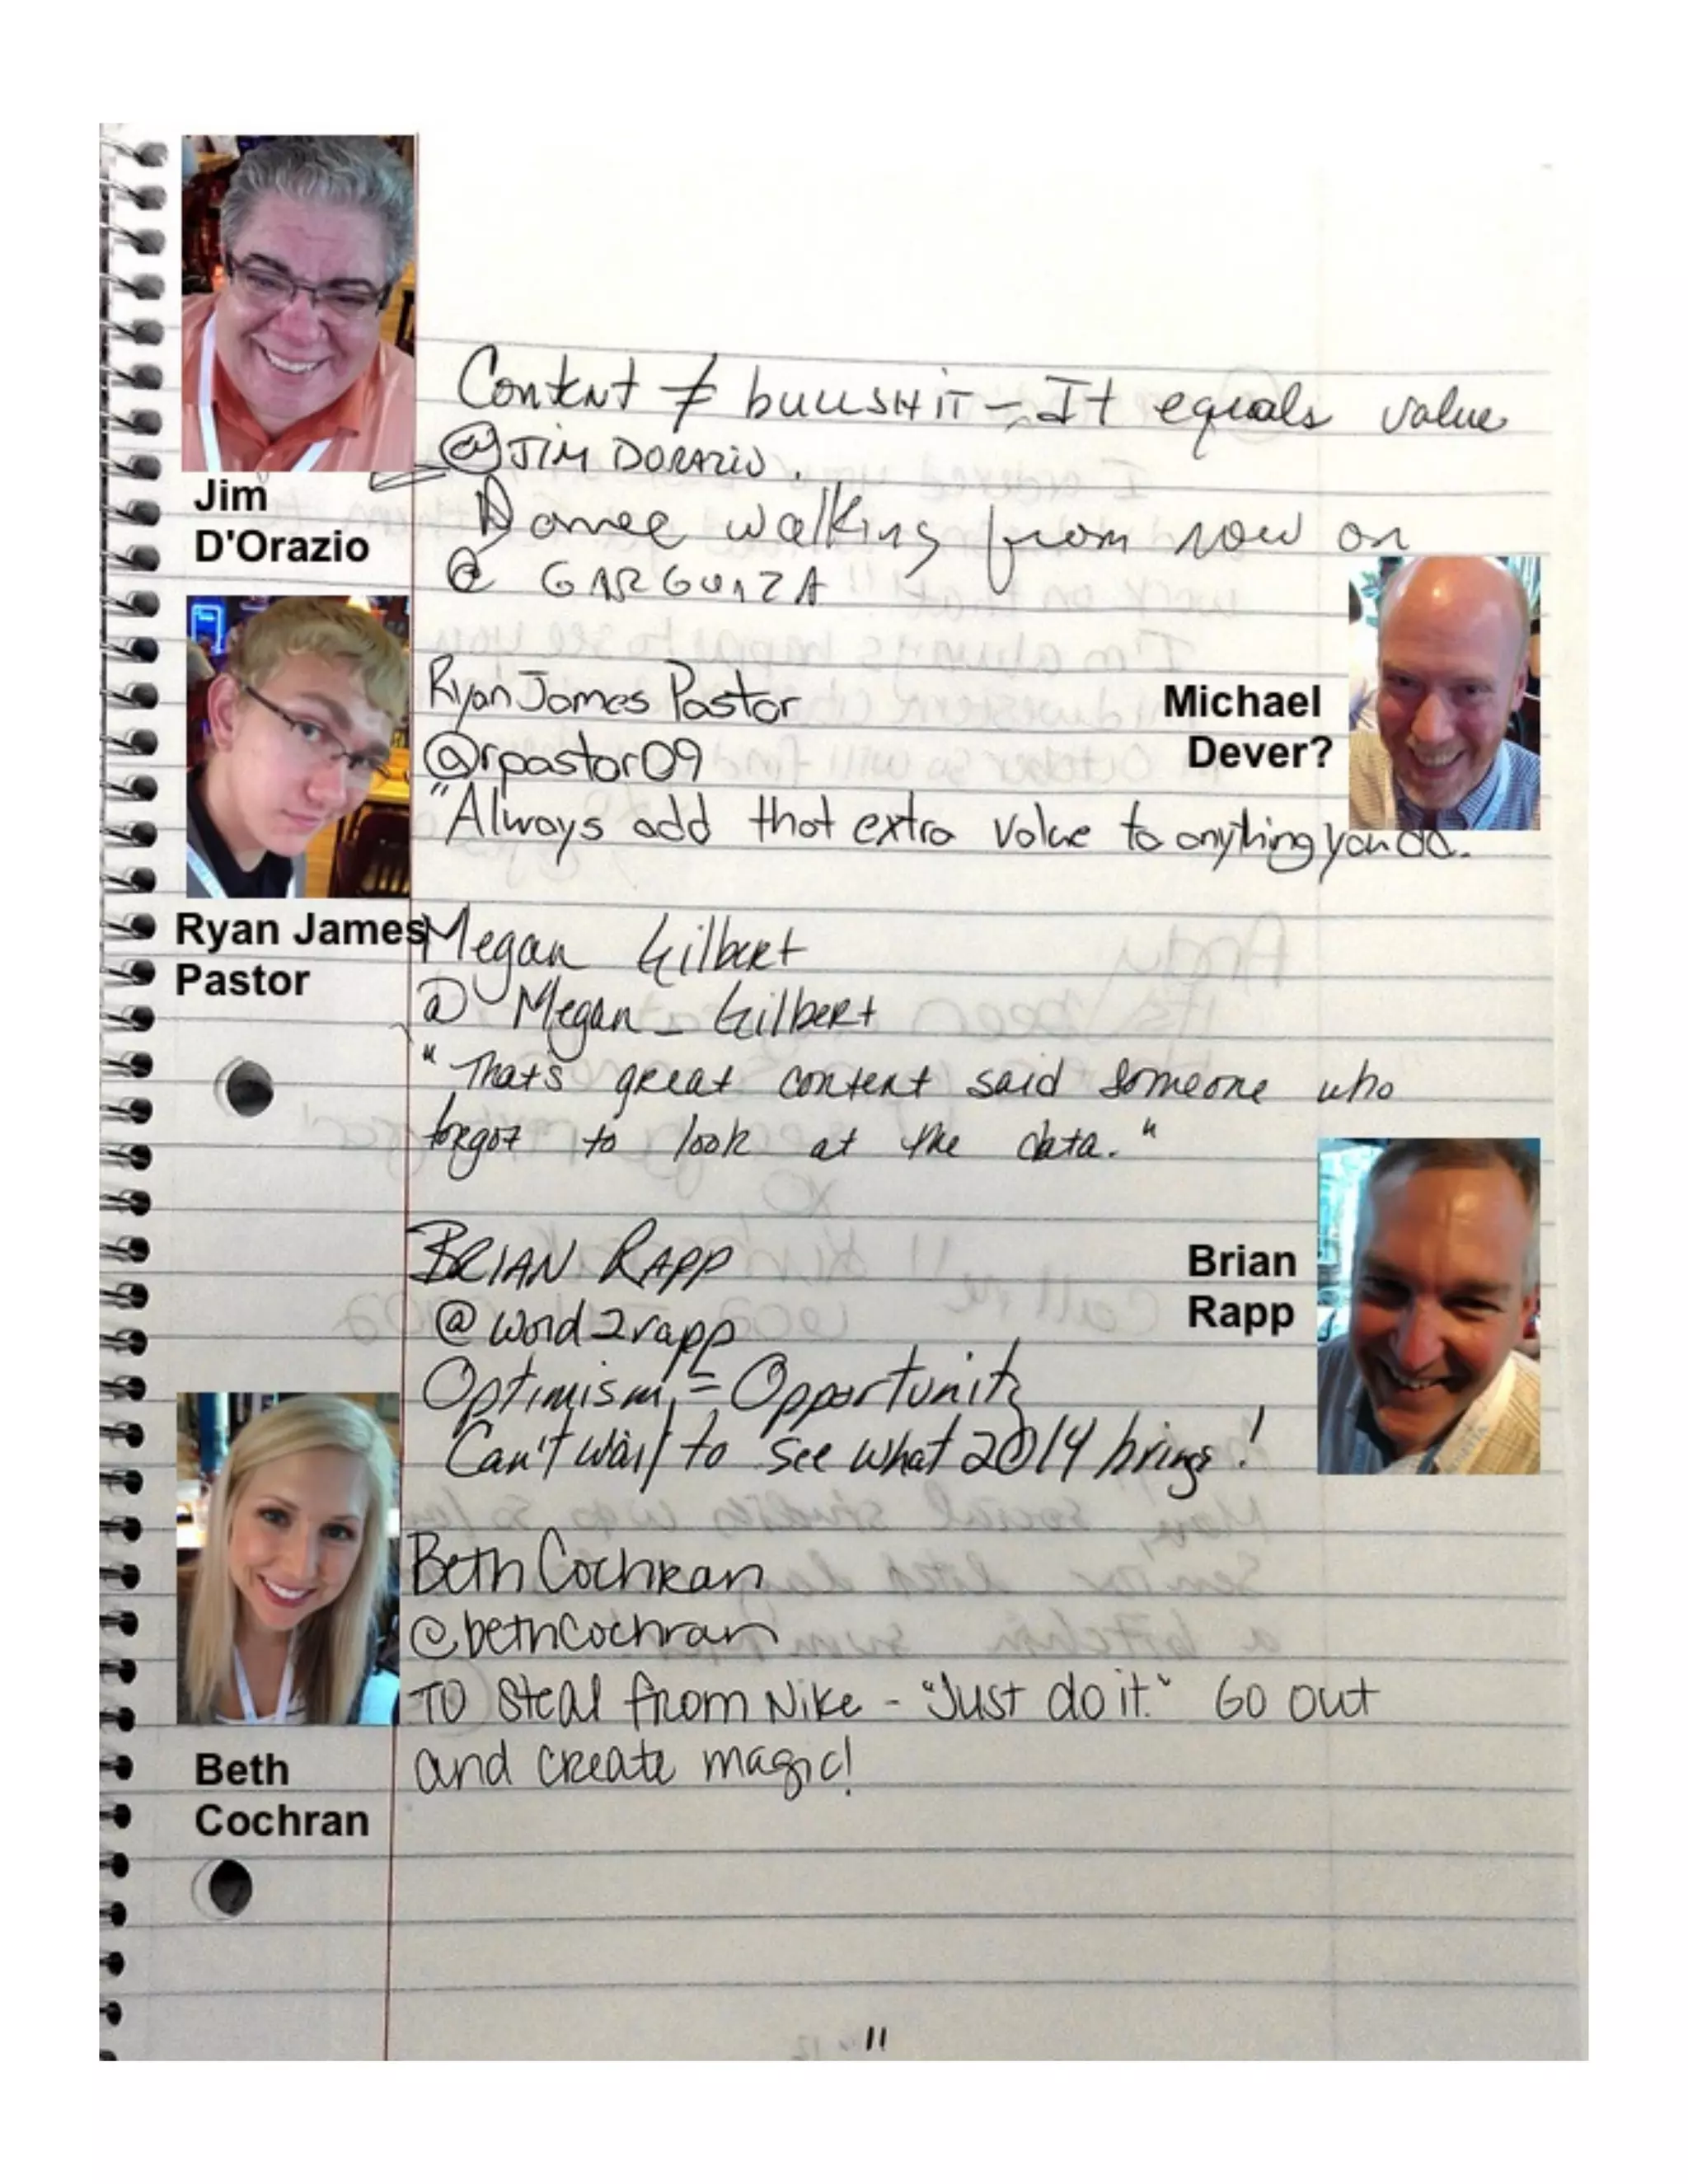 Content ≠ bullSHIT - It equals value
@JIM DORAZIO.
Jim
D'Orazio
Dance walking from now on
@ GARGUNZA
Ryan James Pastor
Michael
Dever?
@rpastor09
"Always add that extra value to anything you do.
Ryan James
Pastor
Megan Gilbert
@ Megan_Gilbert
"Thats great content said someone who
forgot to look at the data."
BRIAN RAPP
Brian
Rapp
@word2rapp
Optimism = Opportunity
Can't wait to see what 2014 brings!
Beth Cochran
@bethCochran
TO Steal from Nike - "Just do it." GO out
and create magic!
Beth
Cochran
11